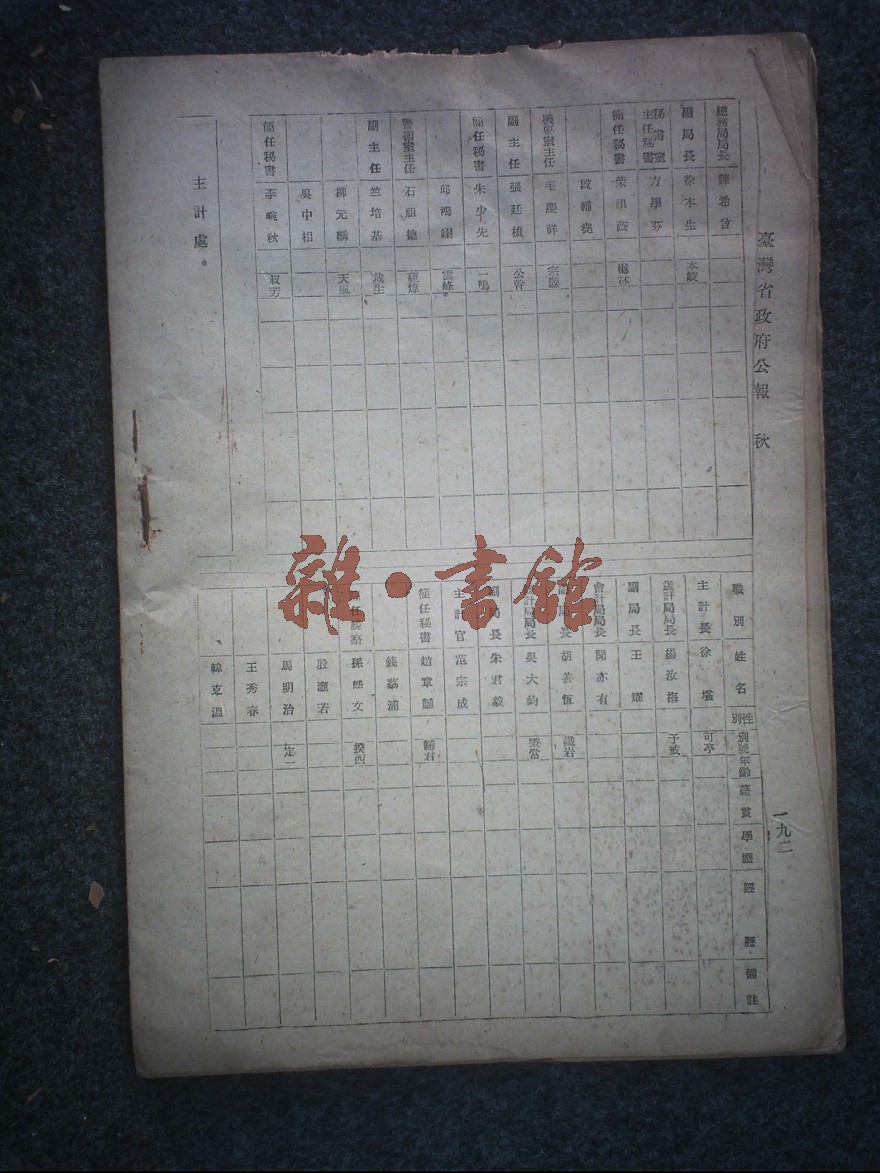 臺灣省政府公報 秋
一九二
總務局局長 陳希曾
副局長 徐本生
秘書室主任秘書 方學芬
簡任秘書
段輔堯
機要室主任 毛慶祥
副主任 張廷楨 公幹
簡任秘書 朱少先 一鳴
邱鴻
警衛室主任 石祖德
副主任 竺培基 成生
柳元麟 天風
吳中相
簡任秘書 李 秋 叔芳
主計處。
職別 姓名 性別 別號 年齡 籍貫 學歷 經歷 備註
主計長 徐堪 可亭
歲計局局長 楊汝梅 予戒
副局長 王
會計局局長 聞亦有
副局長 胡善恆 鐵岩
計局局長 吳大鈞 秉常
副局長 朱君毅
主計官 范宗成
簡任秘書 趙章黼 黼君
孫熙文 揆西
錢荔浦
殷灝若
馬明治 定一
王秀春
韓克溫
雜·書館